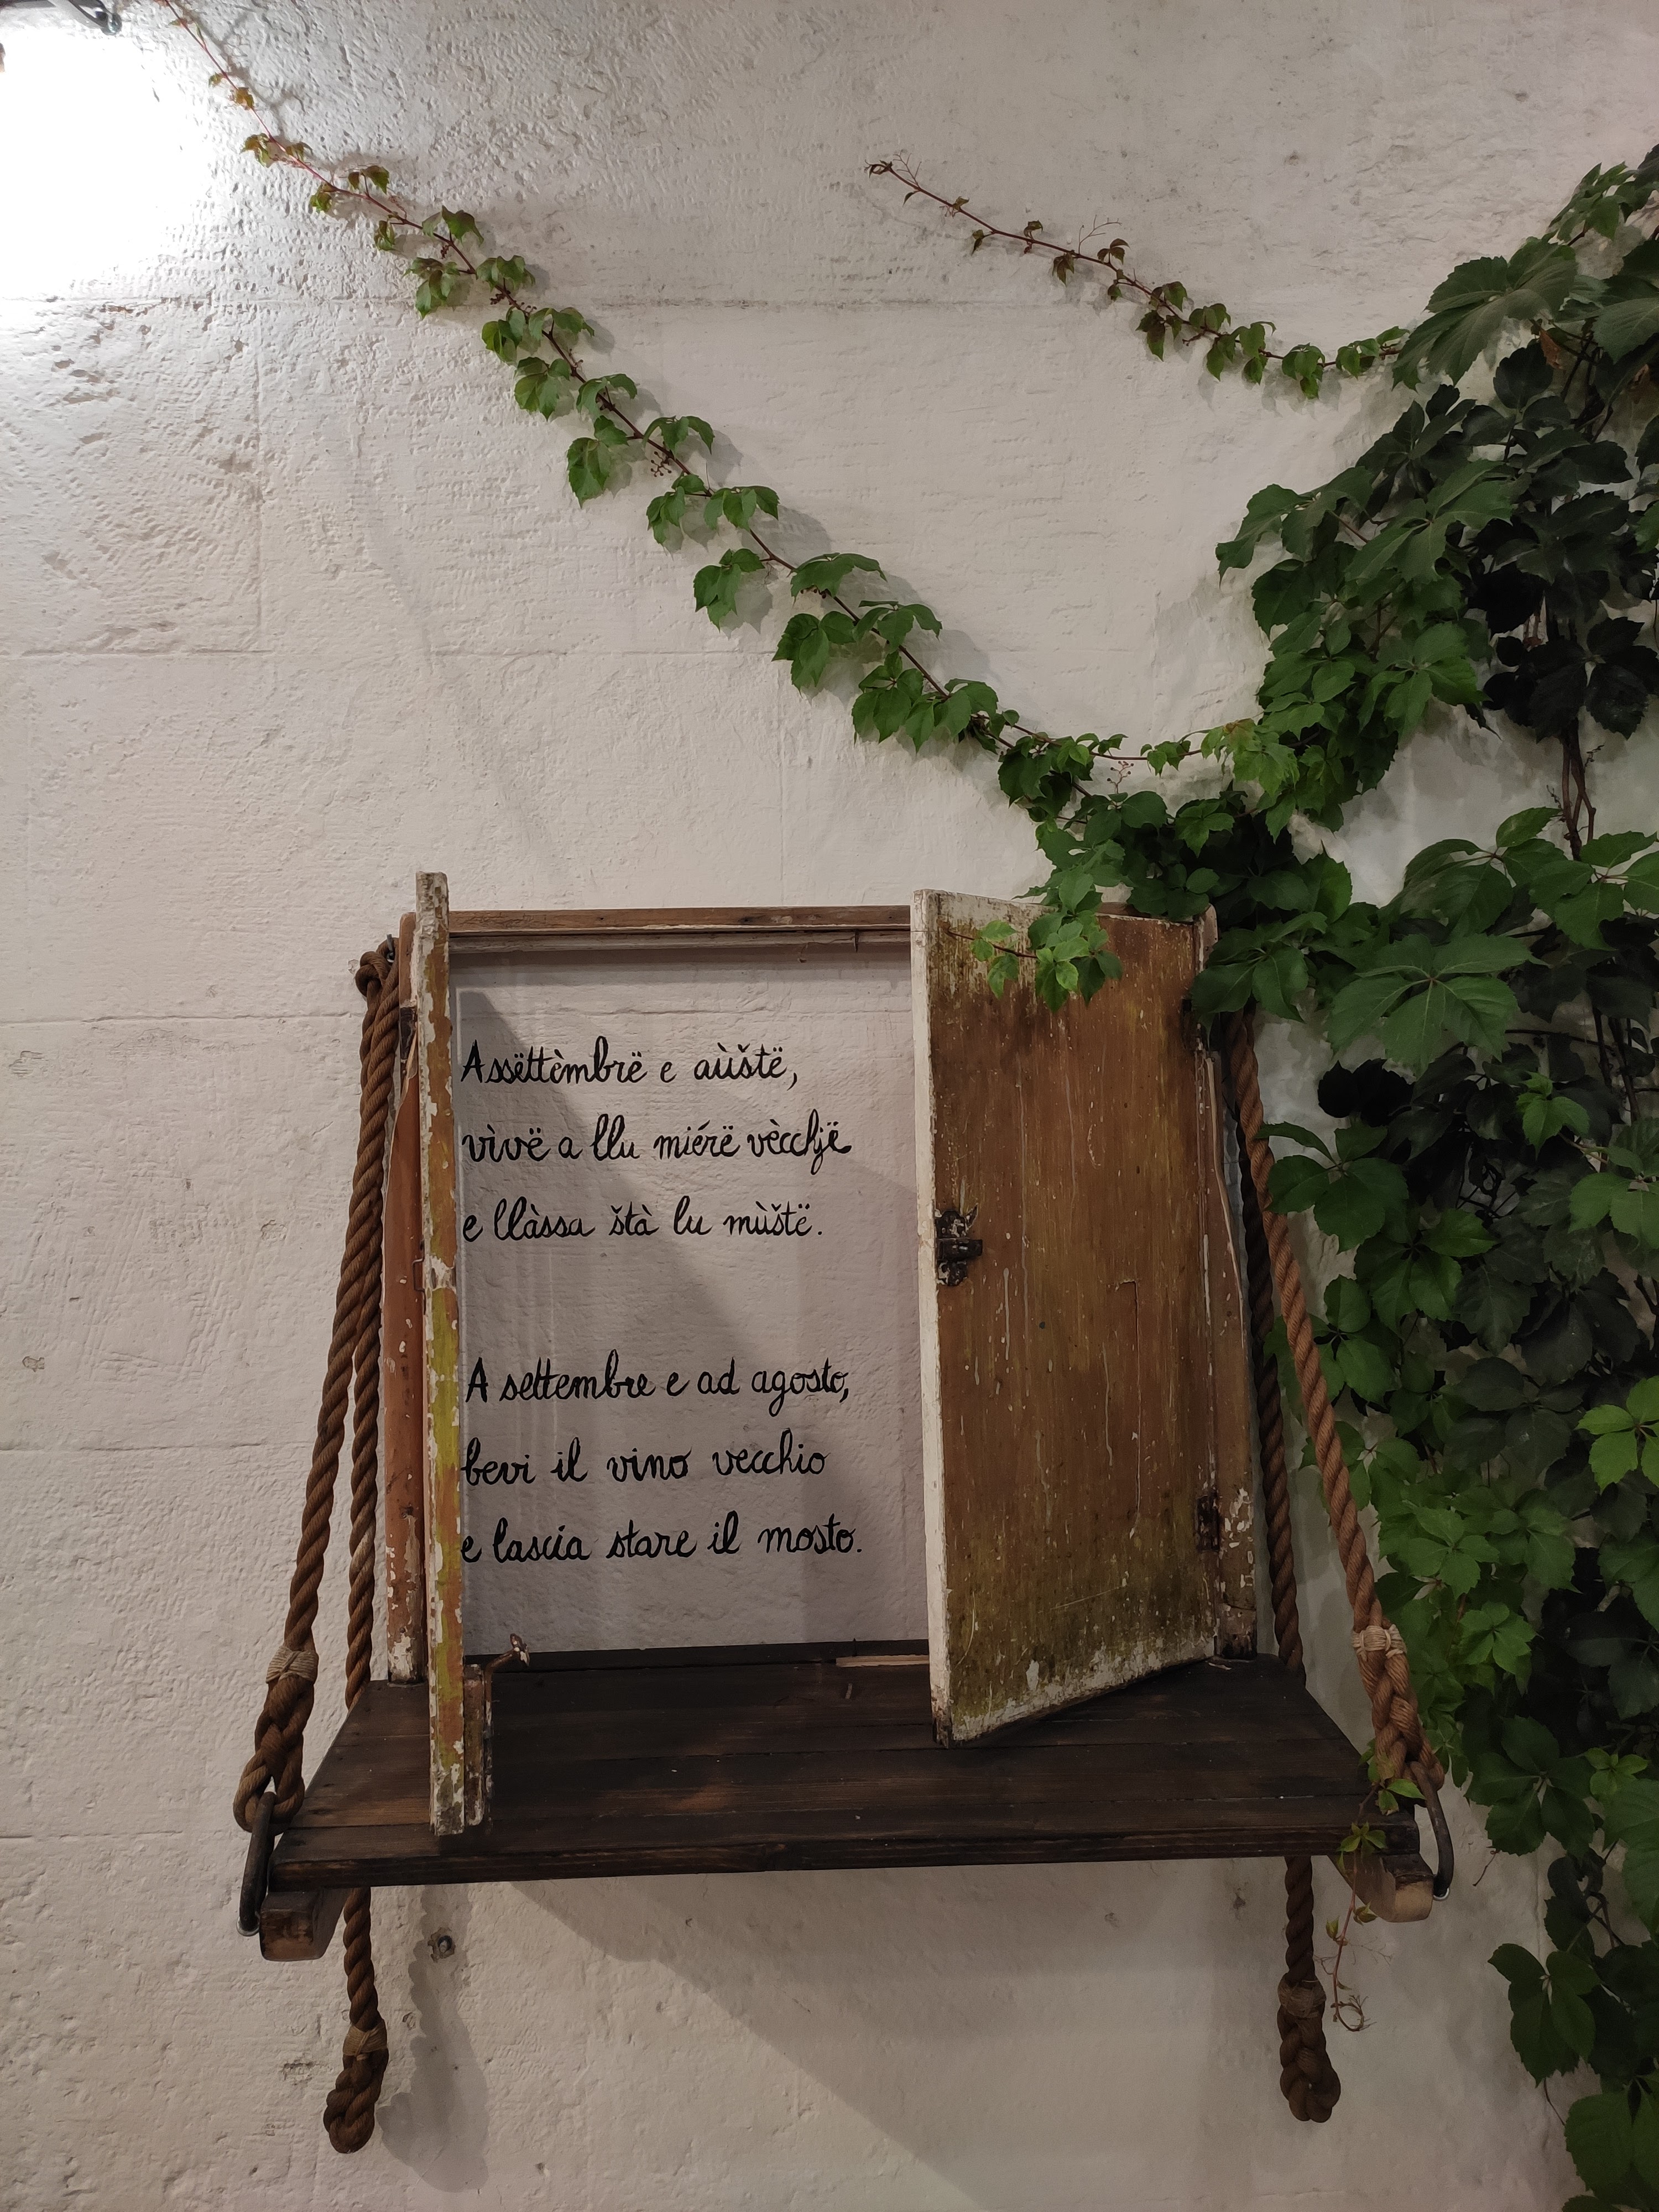 Assëttèmbrë e aùštë,
vìvë a llu miérë vècchjë
e llàssa štà lu mùštë.
A settembre e ad agosto,
bevi il vino vecchio
e lascia stare il mosto.